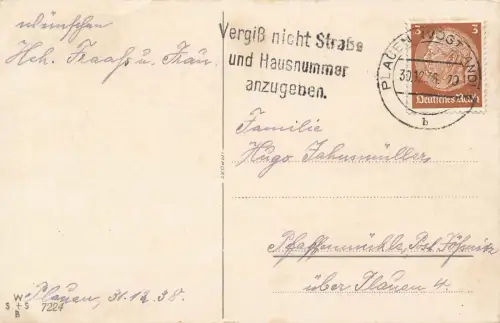 wünschen
Hch. Fraaß u. Frau.
Plauen, 31.12.38.
W
S + S
B
7224
Vergiß nicht Straße
und Hausnummer
anzugeben.
PLAUEN (VOGTLAND)
30.12.38. 20
b
3 3
Deutsches Reich
Familie
Hugo Jahnsmüller
Pfaffenmühle, Post Jößnitz
über Plauen 4.